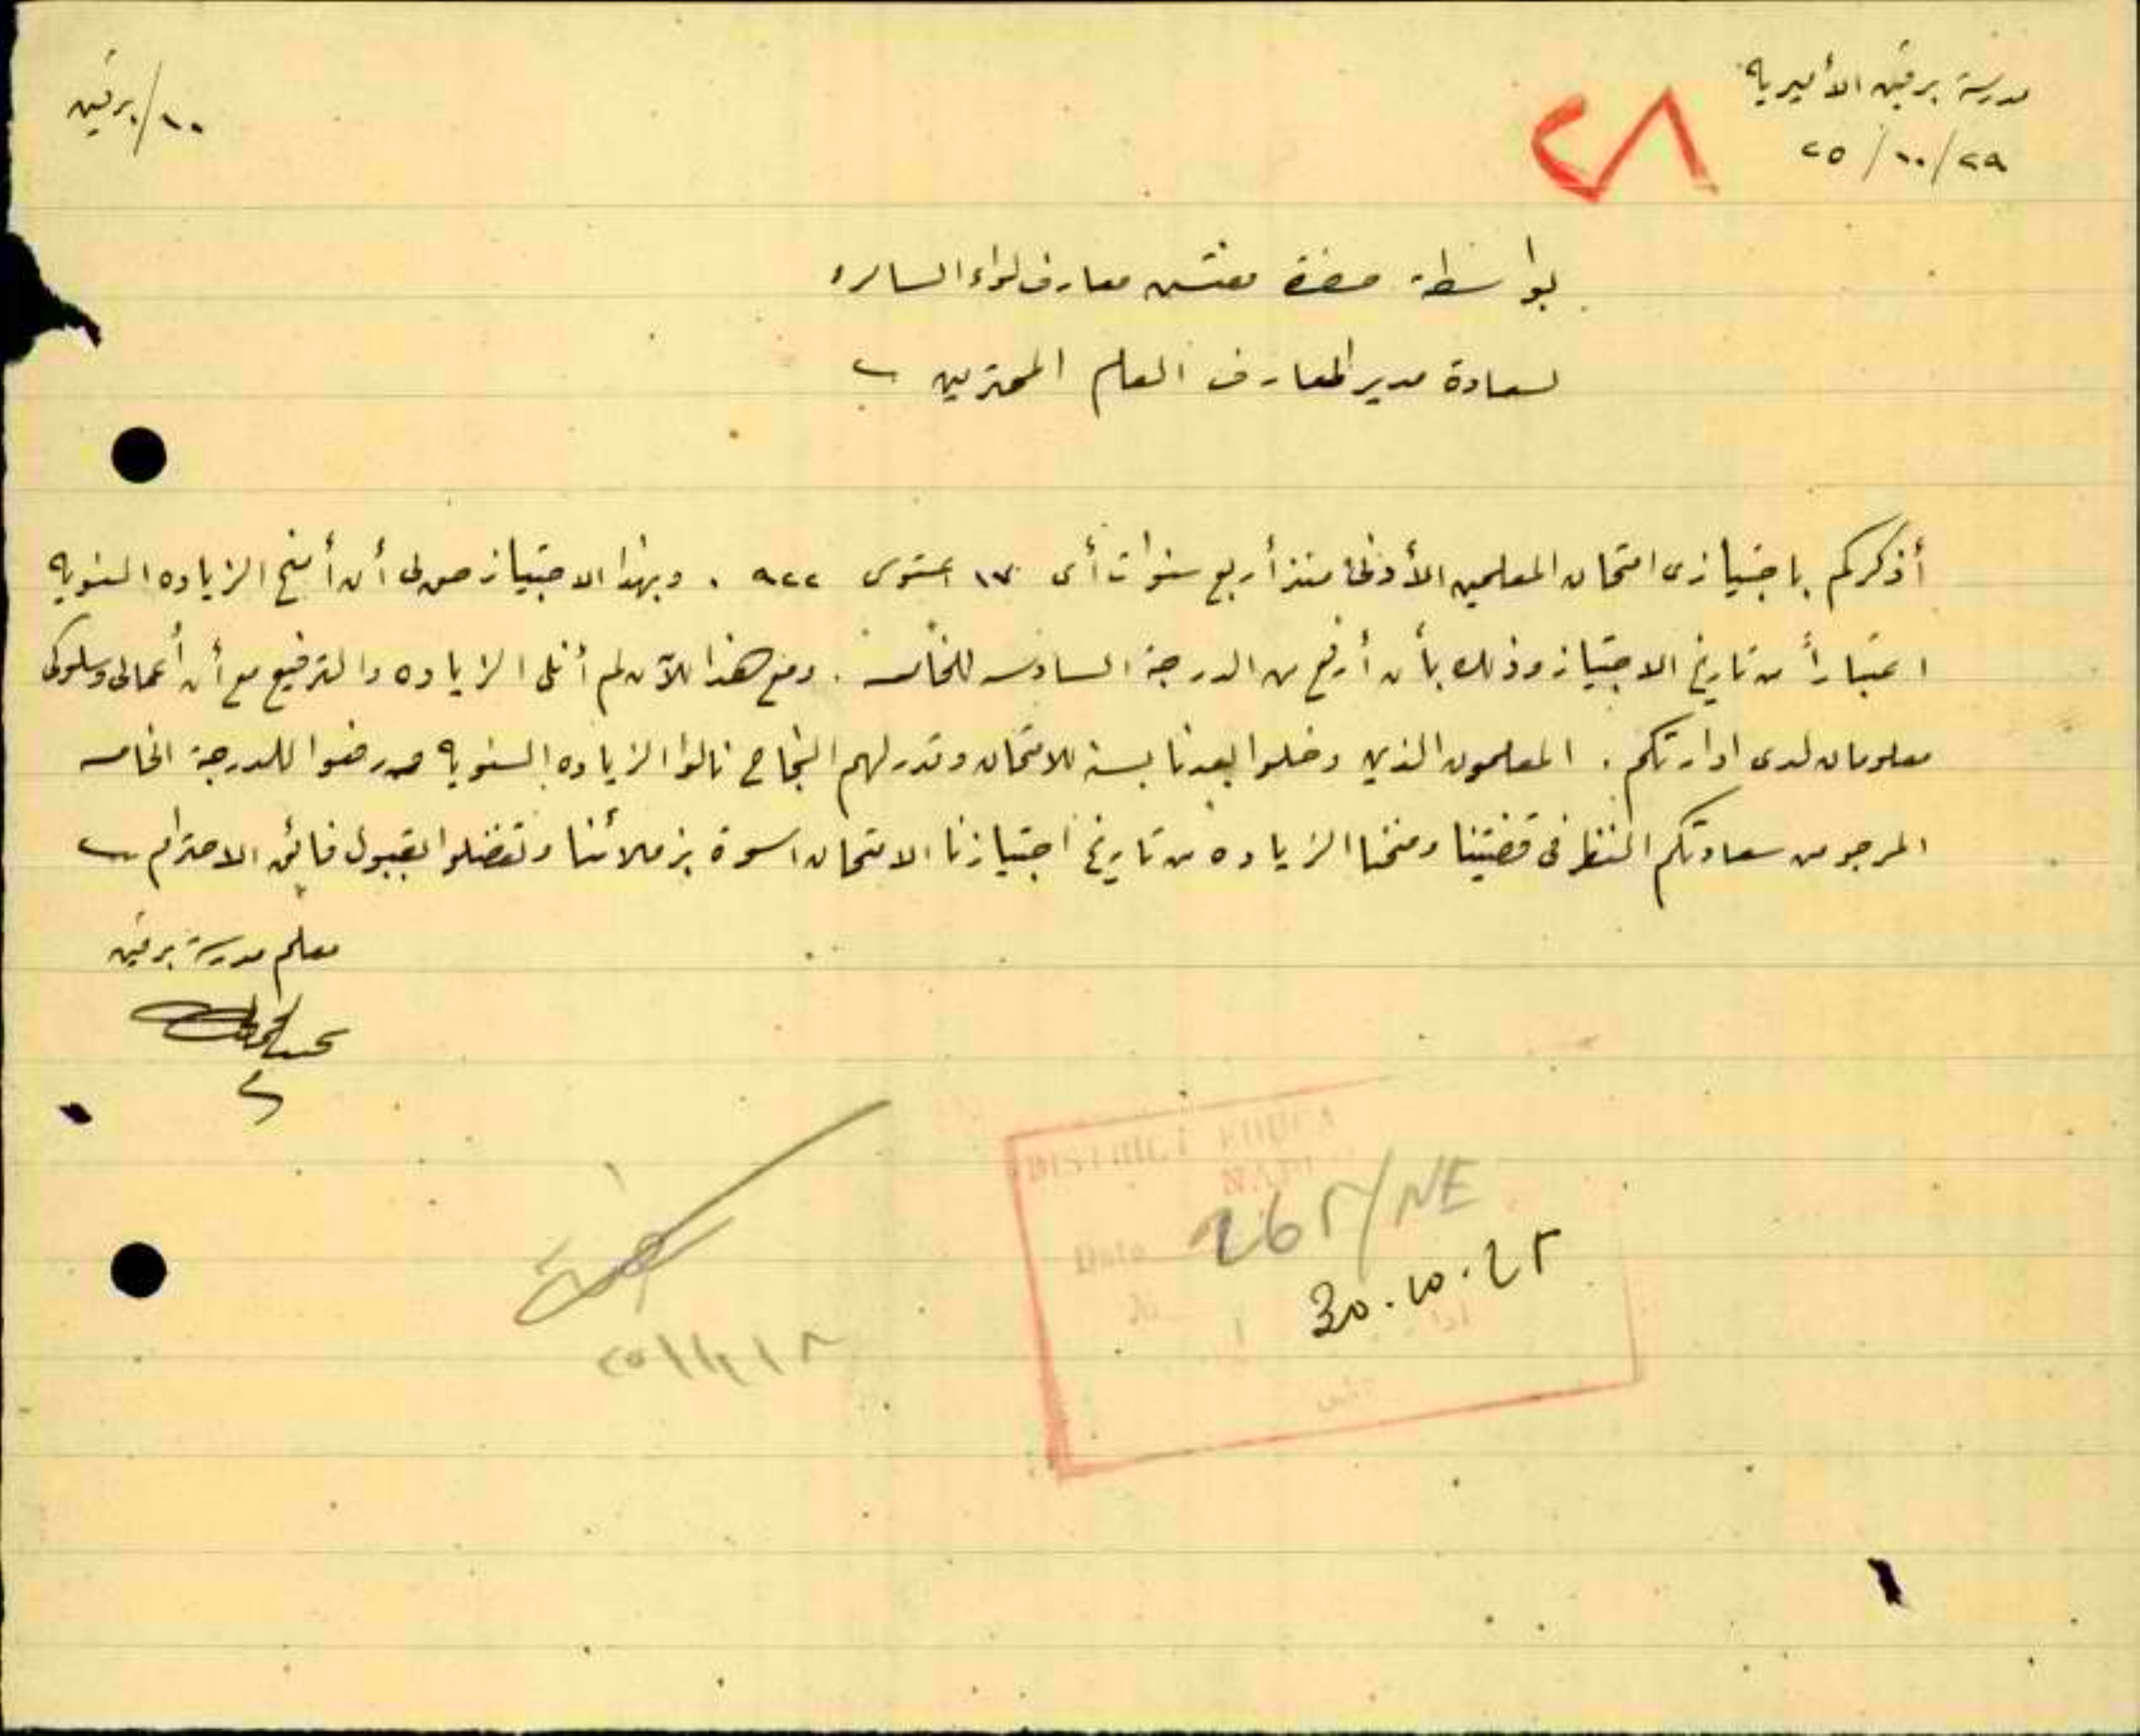 مدرسة برقين الأميرية
٢٩/١٠/٢٥
١٠/برقين
٢٨
بواسطة حضرة مفتش معارف لواء السامره
لسعادة مدير المعارف العام المحترمين
أذكركم باجتيازى امتحان المعلمين الأدنى منذ أربع سنوات أى ٩٢٢ . وبهذا الاجتياز حق لى أن أمنح الزياده السنويه
اعتباراً من تاريخ الاجتياز وذلك بأن أرفع من الدرجة السادسه للخامسه . ومع هذا للآن لم أنل الزياده والترفيع مع أن أعمالى وسلوكى
معلومان لدى ادارتكم . المعلمون الذين دخلوا بعدنا بسنه للامتحان وقدر لهم النجاح نالوا الزياده السنويه ورفعوا للدرجة الخامسه
المرجو من سعادتكم النظر فى قضيتنا ومنحنا الزياده من تاريخ اجتيازنا الامتحان اسوة بزملائنا وتفضلوا بقبول فائق الاحترام
معلم مدرسة برقين
DISTRICT EDUCA
Date
265/NE
30.10.25